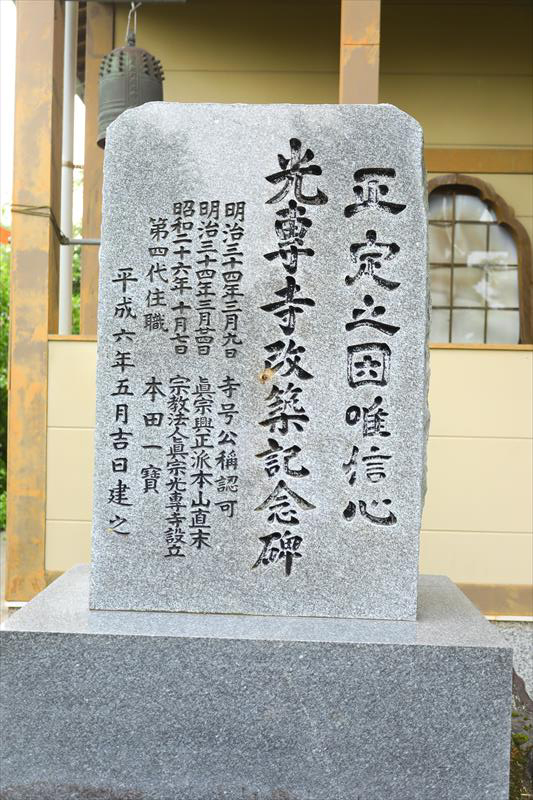 正定之因唯信心
光專寺改築記念碑
明治三十四年三月九日 寺号公稱認可
明治三十四年三月廿四日 眞宗興正派本山直末
昭和二十六年十月七日 宗教法人眞宗光專寺設立
第四代住職 本田一寶
平成六年五月吉日建之